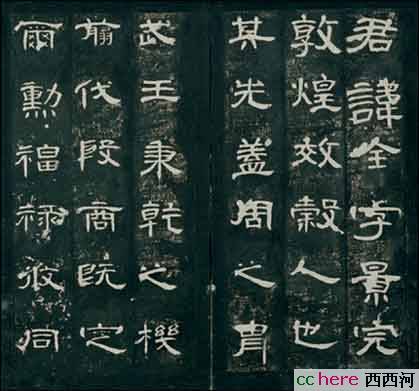 君諱全字景完
敦煌效穀人也
其先蓋周之胄
武王秉乾之機
翦伐殷商既定
爾勳福祿攸同
cchere 西西河